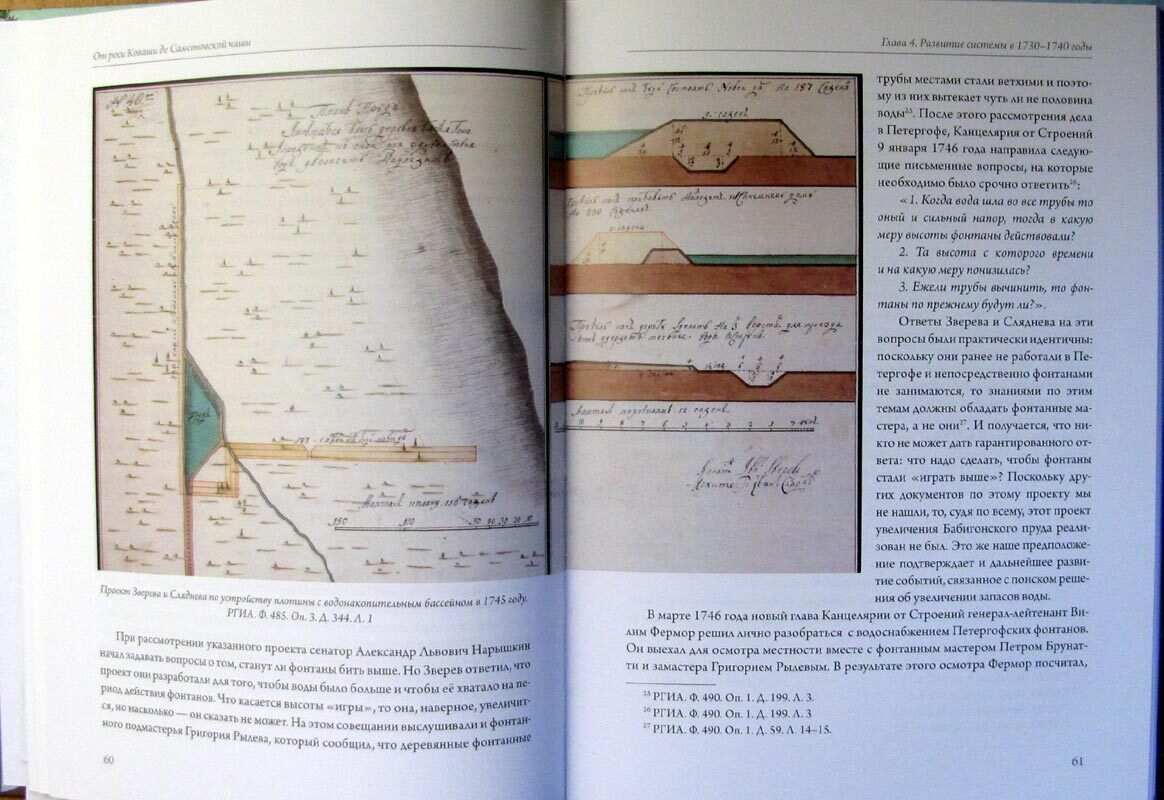 От реки Коваши до Самсоновской чаши
№ 40
187
187
230
12
150
100
50 40 30 20 10
Проект Зверева и Сляднева по устройству плотины с водонакопительным бассейном в 1745 году.
РГИА. Ф. 485. Оп. 3. Д. 344. Л. 1
При рассмотрении указанного проекта сенатор Александр Львович Нарышкин
начал задавать вопросы о том, станут ли фонтаны бить выше. Но Зверев ответил, что
проект они разработали для того, чтобы воды было больше и чтобы её хватало на пе-
риод действия фонтанов. Что касается высоты «игры», то она, наверное, увеличит-
ся, но насколько — он сказать не может. На этом совещании выслушивали и фонтан-
ного подмастерья Григория Рылева, который сообщил, что деревянные фонтанные
60
Глава 4. Развитие системы в 1730–1740 годы
трубы местами стали ветхими и поэто-
му из них вытекает чуть ли не половина
воды²⁵. После этого рассмотрения дела
в Петергофе, Канцелярия от Строений
9 января 1746 года направила следую-
щие письменные вопросы, на которые
необходимо было срочно ответить²⁶:
«1. Когда вода шла во все трубы то
оный и сильный напор, тогда в какую
меру высоты фонтаны действовали?
2. Та высота с которого времени
и на какую меру понизилась?
3. Ежели трубы вычинить, то фон-
таны по прежнему будут ли?».
Ответы Зверева и Сляднева на эти
вопросы были практически идентичны:
поскольку они ранее не работали в Пе-
тергофе и непосредственно фонтанами
не занимаются, то знаниями по этим
темам должны обладать фонтанные ма-
стера, а не они²⁷. И получается, что ни-
кто не может дать гарантированного от-
вета: что надо сделать, чтобы фонтаны
стали «играть выше»? Поскольку дру-
гих документов по этому проекту мы
не нашли, то, судя по всему, этот проект
увеличения Бабигонского пруда реали-
зован не был. Это же наше предположе-
ние подтверждает и дальнейшее разви-
тие событий, связанное с поиском реше-
ния об увеличении запасов воды.
В марте 1746 года новый глава Канцелярии от Строений генерал-лейтенант Ви-
лим Фермор решил лично разобраться с водоснабжением Петергофских фонтанов.
Он выехал для осмотра местности вместе с фонтанным мастером Петром Брунат-
ти и замастера Григорием Рылевым. В результате этого осмотра Фермор посчитал,
²⁵ РГИА. Ф. 490. Оп. 1. Д. 199. Л. 3.
²⁶ РГИА. Ф. 490. Оп. 1. Д. 199. Л. 3
²⁷ РГИА. Ф. 490. Оп. 1. Д. 59. Л. 14–15.
61